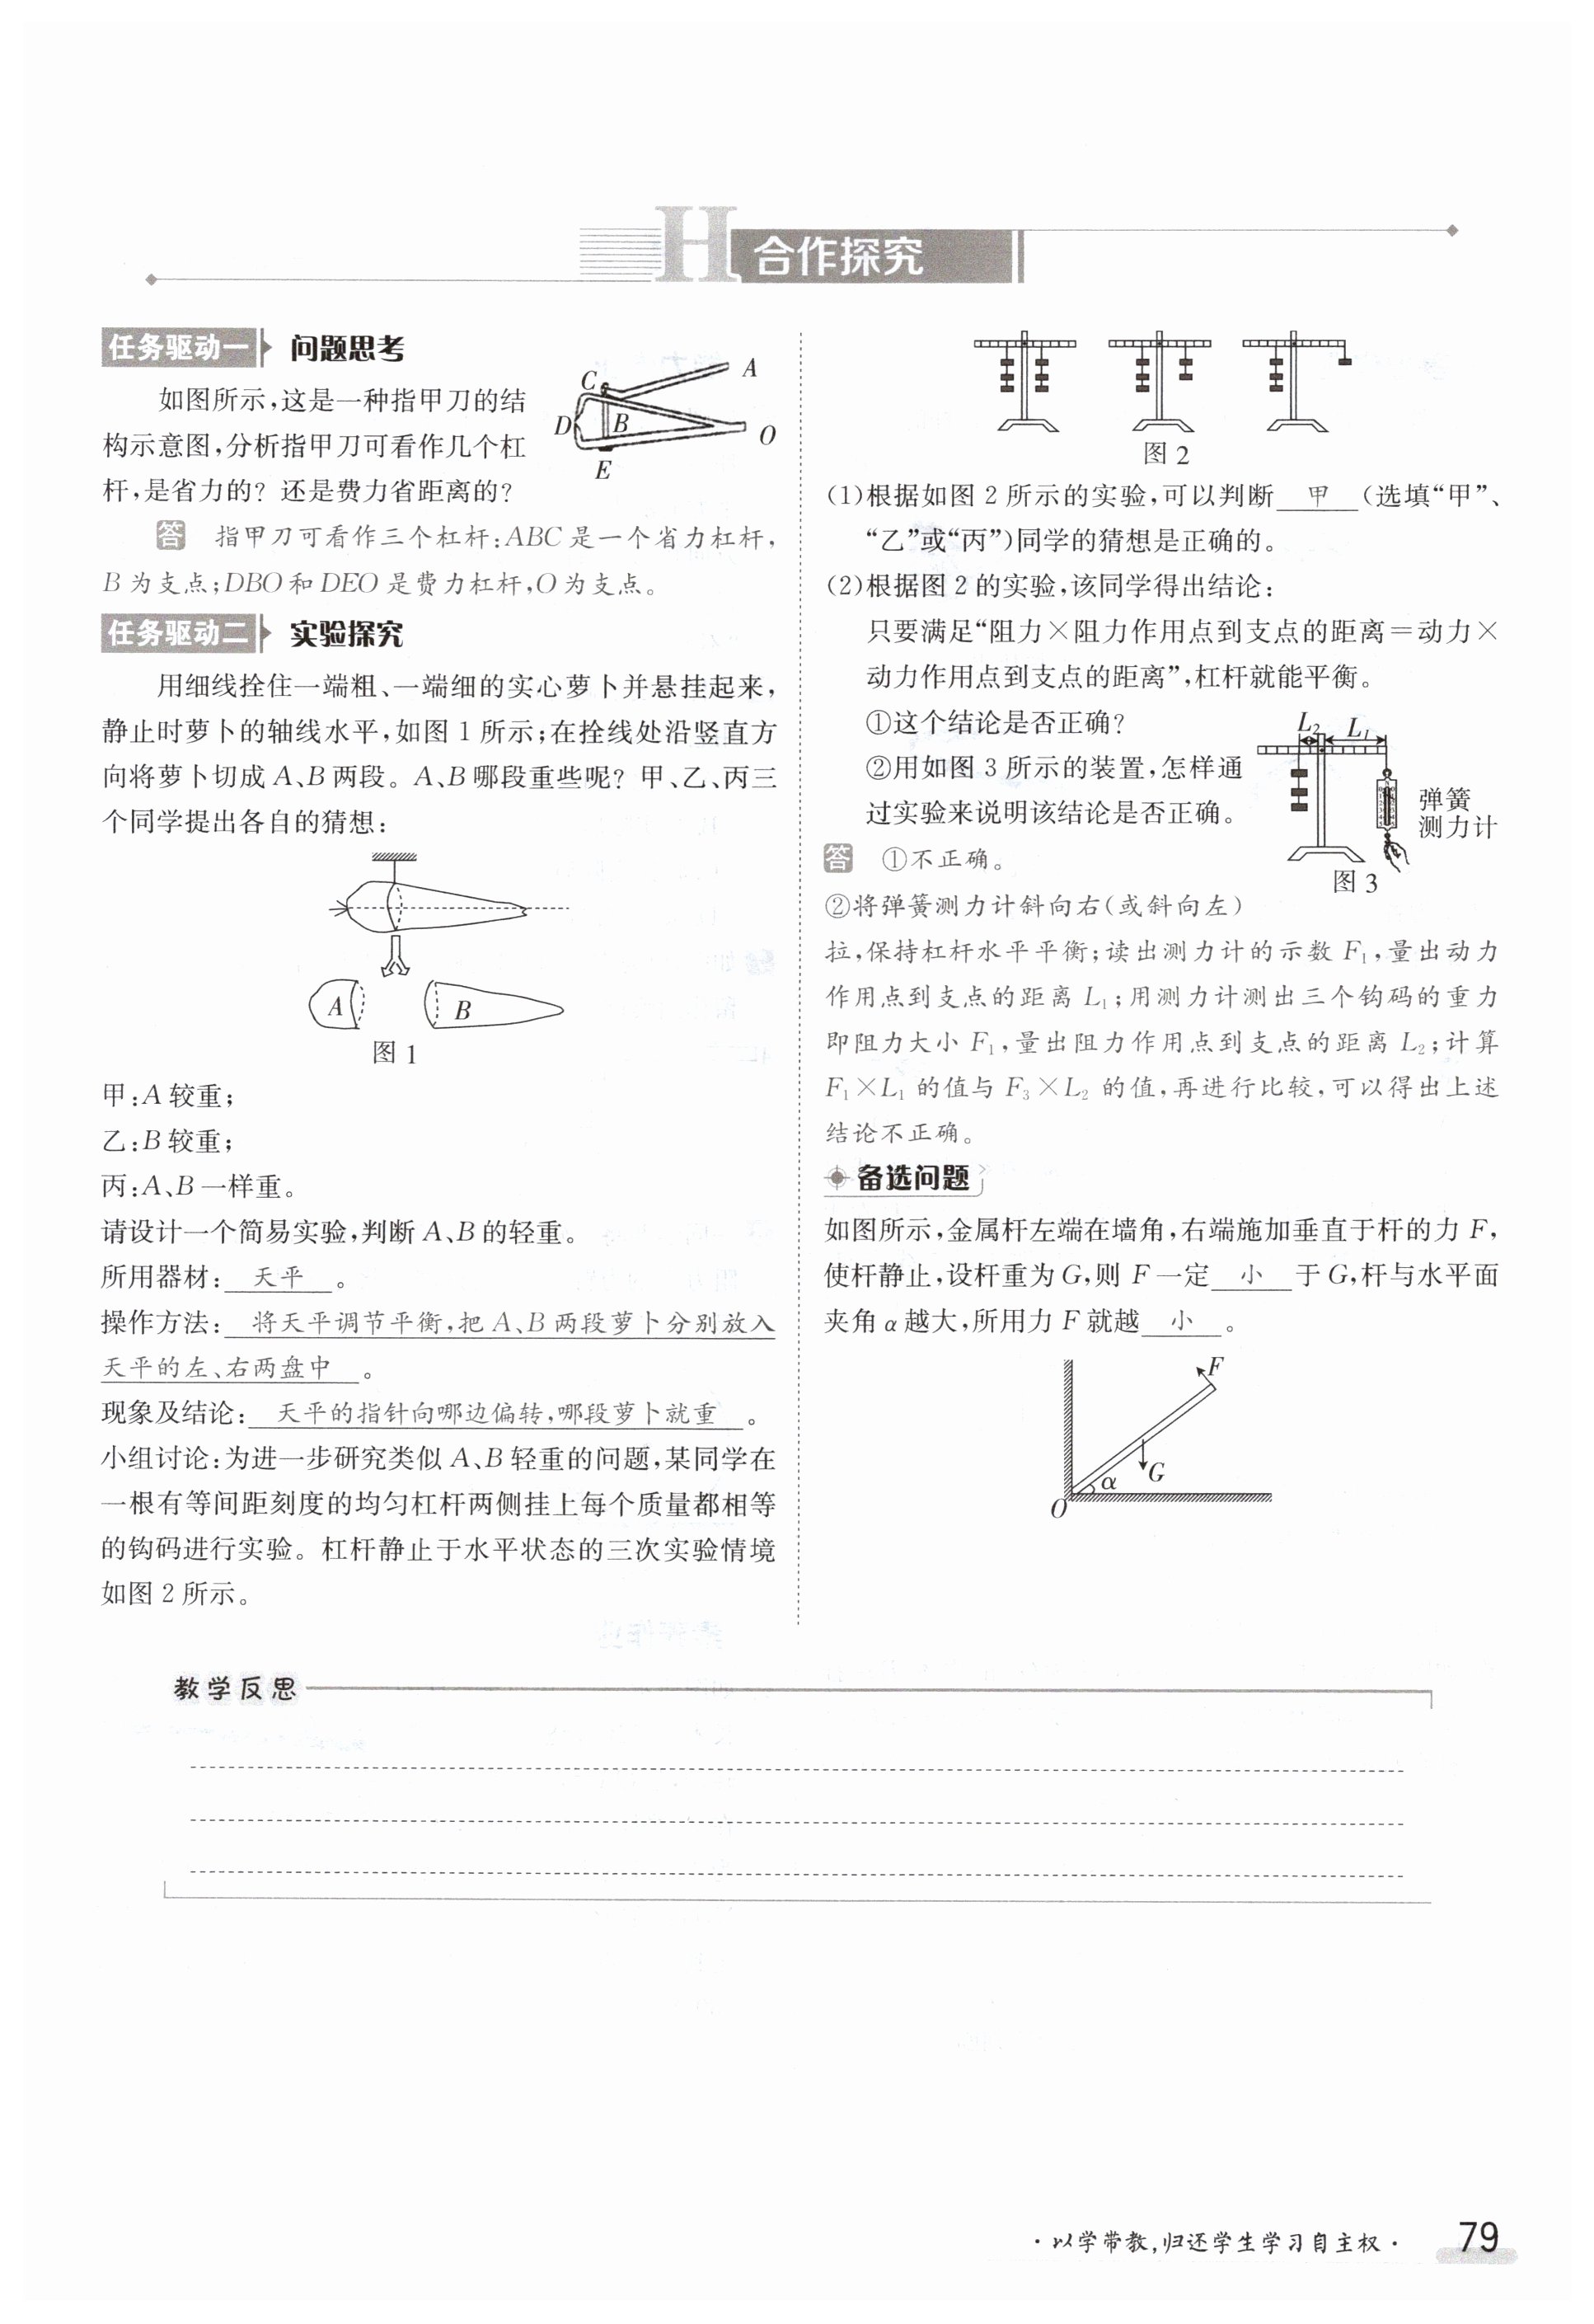 H 合作探究
任务驱动一 问题思考
如图所示,这是一种指甲刀的结
构示意图,分析指甲刀可看作几个杠
杆,是省力的?还是费力省距离的?
A
C
D
B
O
E
答 指甲刀可看作三个杠杆:ABC是一个省力杠杆,
B为支点;DBO和DEO是费力杠杆,O为支点。
任务驱动二 实验探究
用细线拴住一端粗、一端细的实心萝卜并悬挂起来,
静止时萝卜的轴线水平,如图1所示;在拴线处沿竖直方
向将萝卜切成A、B两段。A、B哪段重些呢?甲、乙、丙三
个同学提出各自的猜想:
A
B
图1
甲:A较重;
乙:B较重;
丙:A、B一样重。
请设计一个简易实验,判断A、B的轻重。
所用器材: 天平 。
操作方法: 将天平调节平衡,把A、B两段萝卜分别放入
天平的左、右两盘中 。
现象及结论: 天平的指针向哪边偏转,哪段萝卜就重 。
小组讨论:为进一步研究类似A、B轻重的问题,某同学在
一根有等间距刻度的均匀杠杆两侧挂上每个质量都相等
的钩码进行实验。杠杆静止于水平状态的三次实验情境
如图2所示。
图2
(1)根据如图2所示的实验,可以判断 甲 (选填“甲”、
“乙”或“丙”)同学的猜想是正确的。
(2)根据图2的实验,该同学得出结论:
只要满足“阻力×阻力作用点到支点的距离=动力×
动力作用点到支点的距离”,杠杆就能平衡。
①这个结论是否正确?
②用如图3所示的装置,怎样通
过实验来说明该结论是否正确。
L₂
L₁
弹簧
测力计
图3
答 ①不正确。
②将弹簧测力计斜向右(或斜向左)
拉,保持杠杆水平平衡;读出测力计的示数F₁,量出动力
作用点到支点的距离L₁;用测力计测出三个钩码的重力
即阻力大小F₁,量出阻力作用点到支点的距离L₂;计算
F₁×L₁的值与F₃×L₂的值,再进行比较,可以得出上述
结论不正确。
备选问题
如图所示,金属杆左端在墙角,右端施加垂直于杆的力F,
使杆静止,设杆重为G,则F一定 小 于G,杆与水平面
夹角α越大,所用力F就越 小 。
F
G
α
O
教学反思
·以学带教,归还学生学习自主权· 79